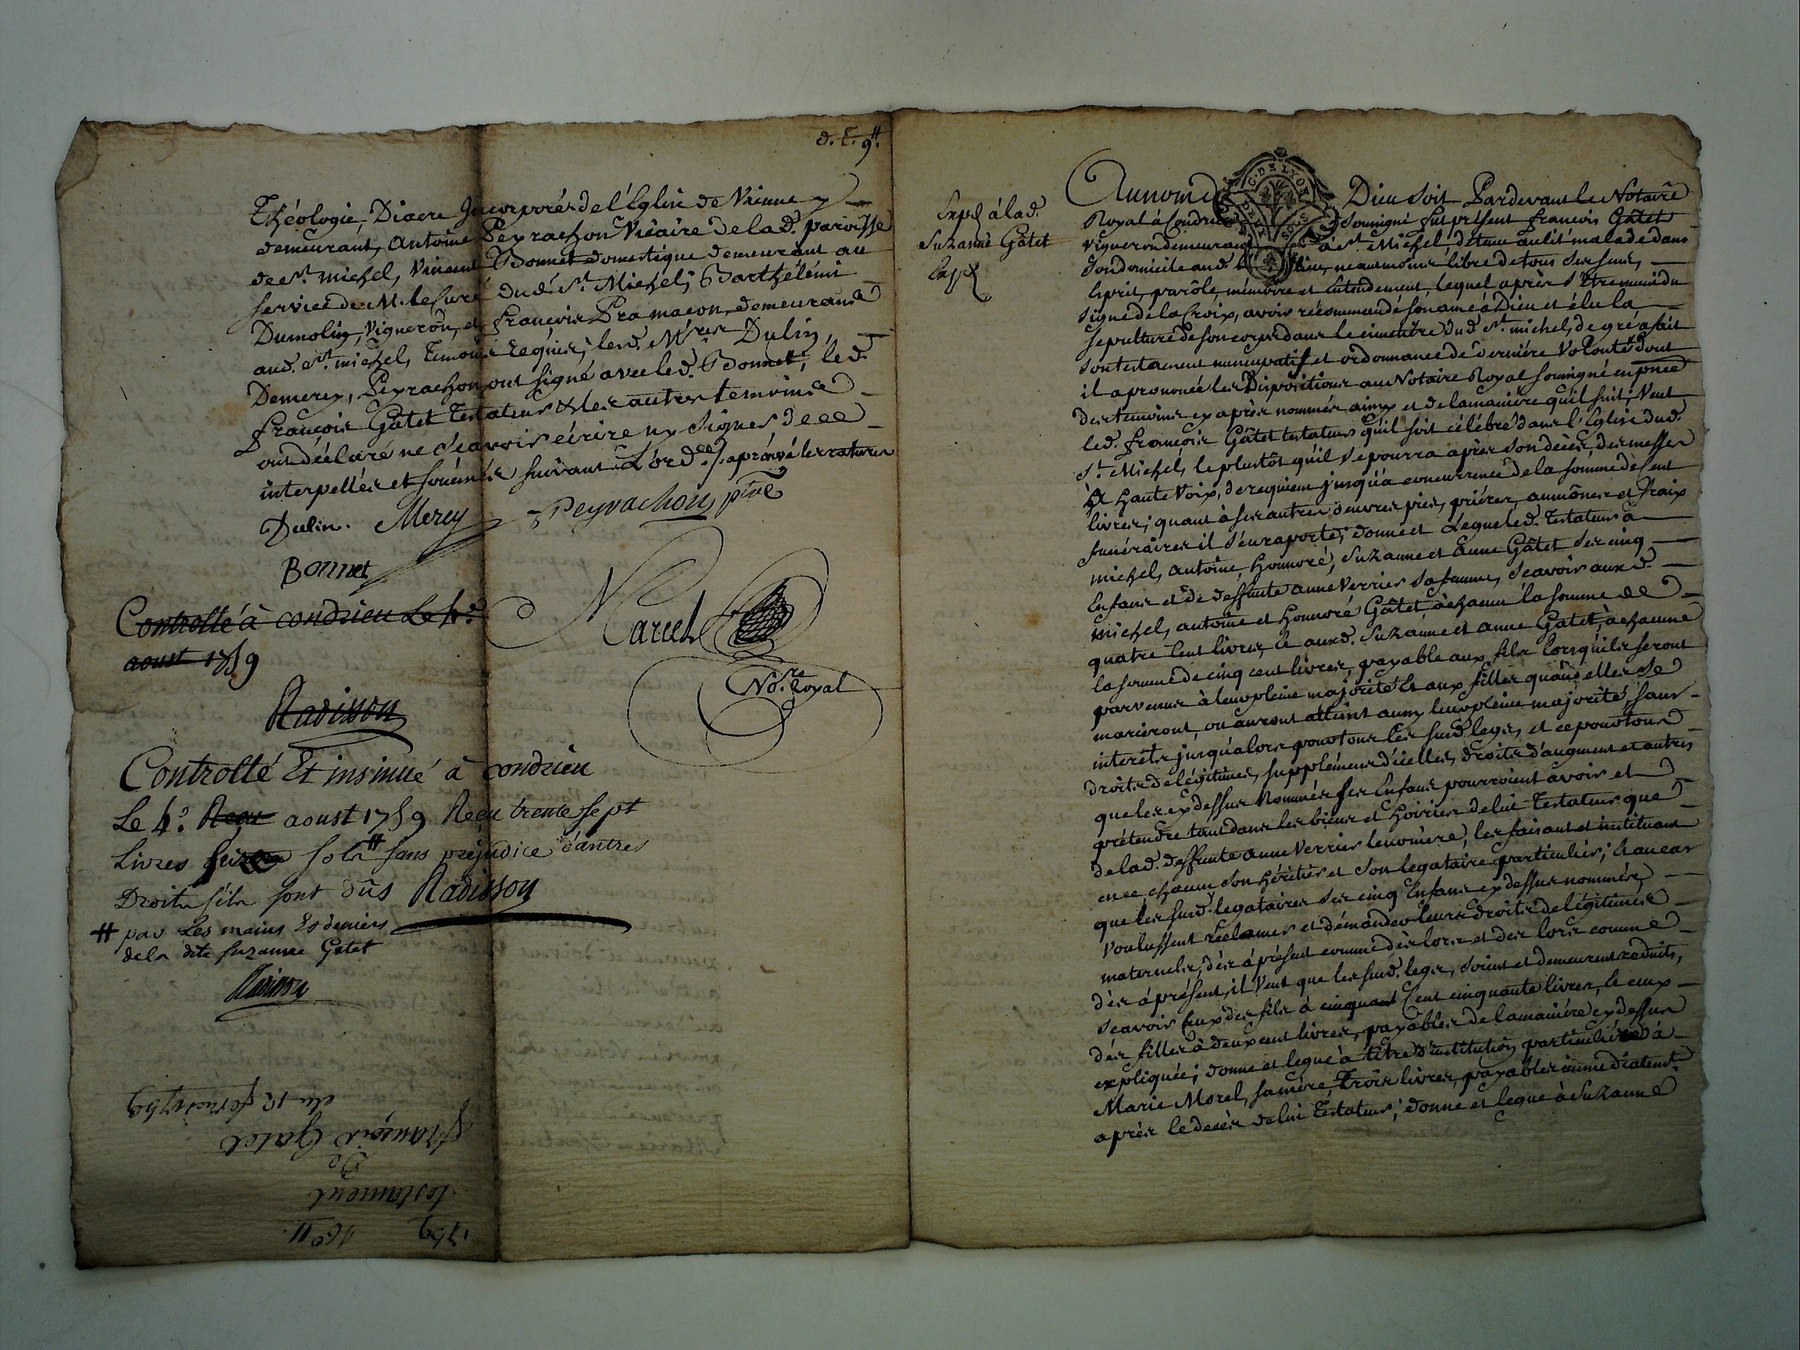 d. t. 9.tt
Théologie, Diacre Incorporé de l'Eglise de Vienne y
demeurant, Antoine Peyrachon Vicaire de lad. paroisse
de St. michel, Vincent Bonnet domestique demeurant au
service de M. le Curé dud. St. Michel, Barthélemi
Dumolin, Vigneron, et françois Pramacon, demeurans
aud. St. michel, Temoins requis; lesd. Mres. Dulin,
Demerey, Peyrachon ont signé avec led. Bonnet, led.
françois Gâtet Testateur & les autres temoins
ont déclaré ne sçavoir écrire ny signer de ce
interpellés et sommés suivant l'ordce. /. aprouvé les ratures
Dulin. Merey Peyrachon ptre
Bonnet
Marcel
Nore. Royal
Controllé à condrieu Le 4e
aoust 1759
Radisson
Controllé Et insinué à condrieu
Le 4e. Reçu aoust 1759 Reçu trente sept
Livres sols tt sans prejudice d'autres
Droits s'ils sont dûs Radisson
tt par Les mains Es deniers
de la dite suzanne Gatet
Radisson
1759
testament
De
françois Gatet
Expd. à lad.
Suzanne Gâtet
Expd.
G. DE LYON
Au nom de Dieu soit Pardevant le Notaire
Royal à Condrieu soussigné fut présent françois Gâtet
Vigneron demeurant à St. Michel, détenu au lit malade dans
son domicile aud. neanmoins libre de tous ses sens,
Esprit, parôle, mémoire et Entendement, lequel après s'être muni du
signe de la Croix, avoir récommandé son ame à Dieu et élu la
sepulture de son corps dans le cimetière dud. St. michel, de gré a fait
son testament nuncupatif et ordonnance de derniére Volonté dont
il a prononcé les Dispositions au Notaire Royal soussigné en pnce
des temoins cy après nommés ainsy et de la maniére qu'il suit; Veut
led. françois Gâtet testateur qu'il soit célébré dans l'Eglise dud.
St. Michel, le plustôt qu'il se pourra après son décès, des messes
à Haute Voix, de requiem jusqu'à concurrence de la somme de Cent
livres; quant à ses autres œuvres pies, priéres, aumônes et fraix
funéraires il s'en raporte; donne et Legue led. Testateur à
michel, antoine, Honnoré, Suzanne et Anne Gâtet ses cinq
Enfans et de deffunte anne Verrier sa femme, sçavoir auxd.
michel, antoine et Honnoré Gâtet, à chacun la somme de
quatre Cent livres, et auxd. Suzanne et anne Gatet, à chacune
la somme de cinq cent livres, payable aux fils lorsqu'ils seront
parvenus à leur pleine majorité Et aux filles quand elles se
marieront, ou auront atteint aussy leur pleine majorité, sans
interêts jusqu'alors pour tous les susd. legs, et ce pour tous
droits de légitimes, supplément d'icelles, droits d'augment et autres
que les cy dessus Nommés ses Enfans pourroient avoir et
prétendre tant dans les biens et Hoiries de lui Testateur que
de lad. deffunte anne Verrier leur mère, les faisant et instituant
en ce chacun son Héritier et son legataire particulier; Et au cas
que les susd. legataires ses cinq Enfans cy dessus nommés,
Voulussent réclamer et démander leurs droits de légitimes
maternels, dès à présent comme dès lors et dès lors comme
dès à présent, il Veut que les susd. legs, soient et demeurent réduits,
sçavoir Ceux des fils à Cent cinquante livres, et ceux
des filles à deux cent livres, payables de la maniére cy dessus
expliquée; donne et legue à titre d'institution particuliére à
Marie Morel, sa mére, trois livres, payables immediatemt.
après le decès de lui Testateur; donne et legue à Suzanne